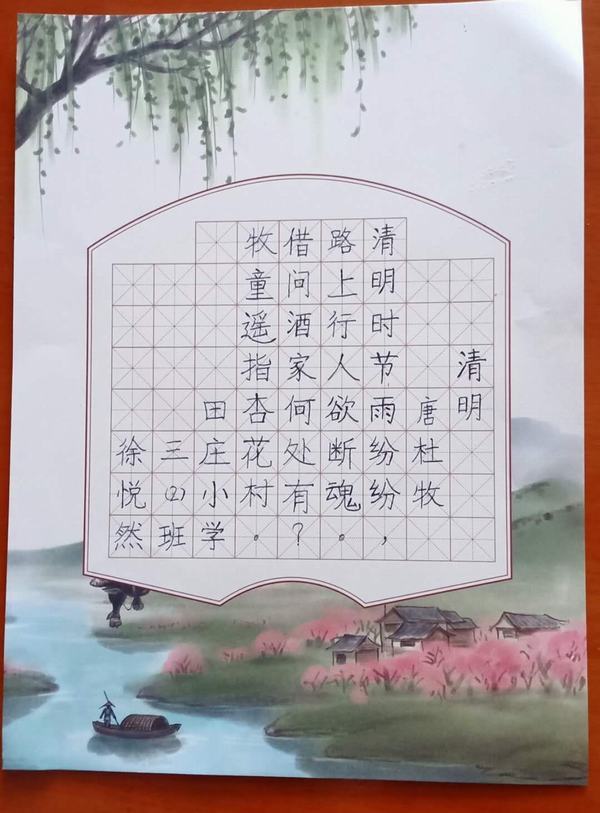 清明
唐杜牧
清明时节雨纷纷，
路上行人欲断魂。
借问酒家何处有？
牧童遥指杏花村。
田庄小学
三(2)班
徐悦然